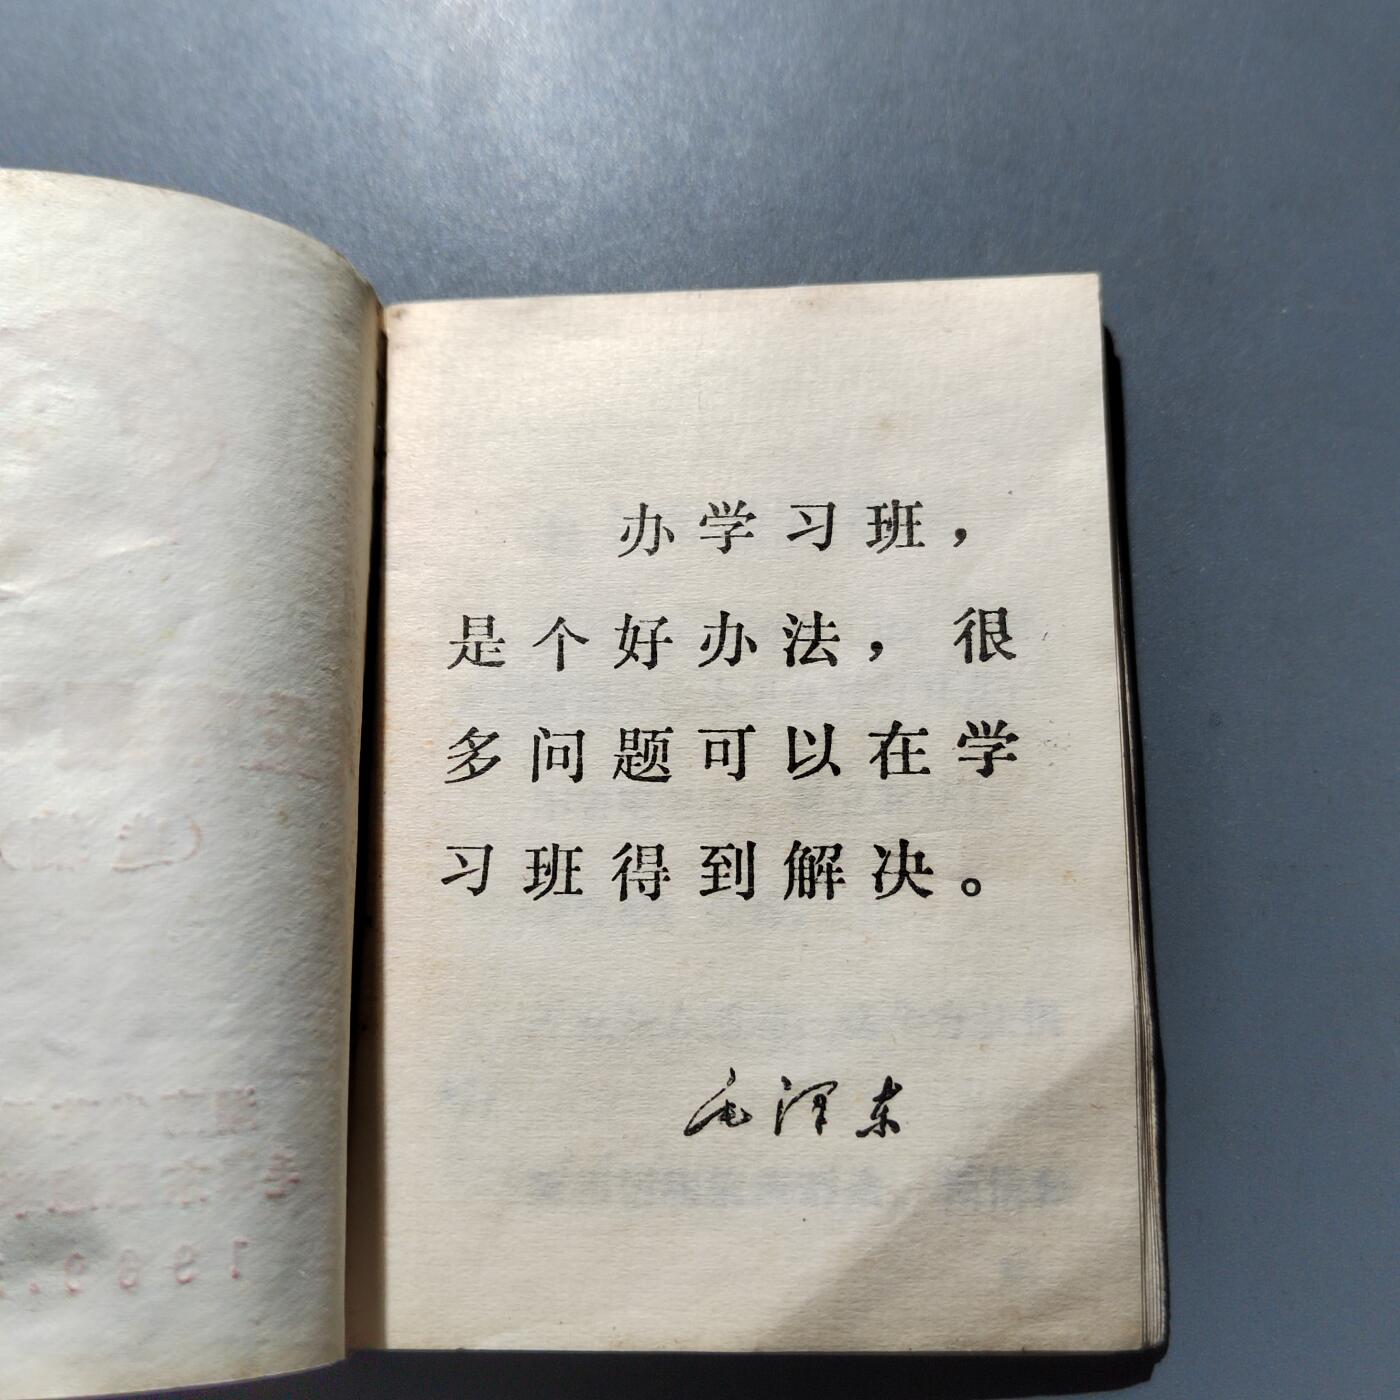 办学习班，
是个好办法，很
多问题可以在学
习班得到解决。
毛泽东